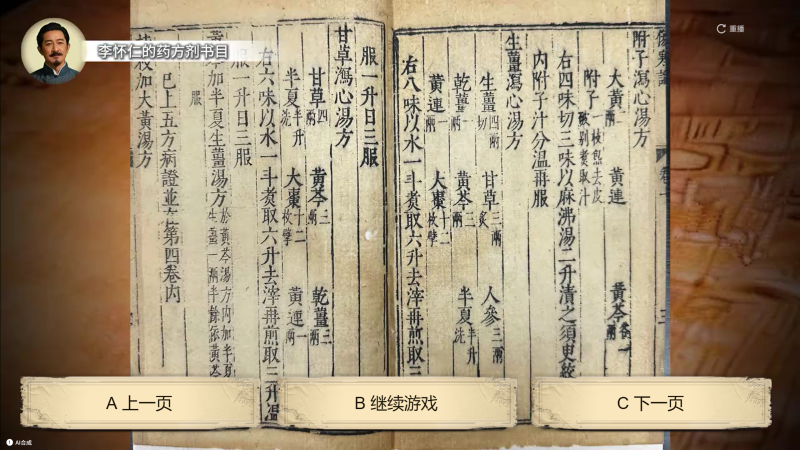 李怀仁的药方剂书目
重播
附子瀉心湯方
大黃二兩 黃連 黃芩各一兩
附子一枚炮去皮破別煑取汁
右四味切三味以麻沸湯二升漬之須臾絞
内附子汁分温再服
生薑瀉心湯方
生薑四兩切 甘草三兩炙 人參三兩
乾薑一兩 黃芩三兩 半夏半升洗
黃連一兩 大棗十二枚擘
右八味以水一斗煑取六升去滓再煎取三
服一升日三服
甘草瀉心湯方
甘草四兩 黃芩三兩 乾薑三兩
半夏半升洗 大棗十二枚擘 黃連一兩
右六味以水一斗煑取六升去滓再煎取三升温
服一升日三服
黃芩加半夏生薑湯方於黃芩湯方内加半夏
生薑一兩半餘依黃芩
服
已上五方病證並在第四卷内
桂枝加大黃湯方
A 上一页
B 继续游戏
C 下一页
AI合成